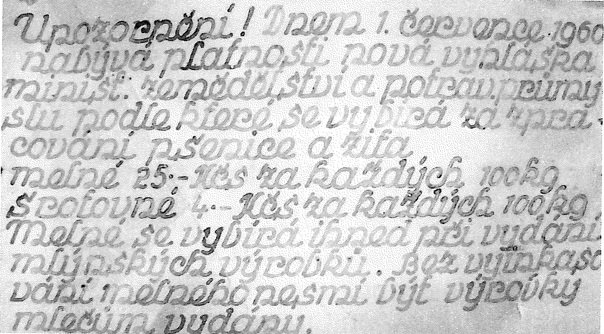 Upozornění! Dnem 1. července 1960
nabývá platnosti nová vyhláška
minist. zemědělství a potrav. průmy
slu podle které se vybírá za zpra
cování pšenice a žita
melné 25.- Kčs za každých 100kg
Šrotovné 4.- Kčs za každých 100kg
Melné se vybírá ihned při vydání
mlýnských výrobků. Bez vyinkaso
vání melného nesmí být výrobky
mlečům vydány.